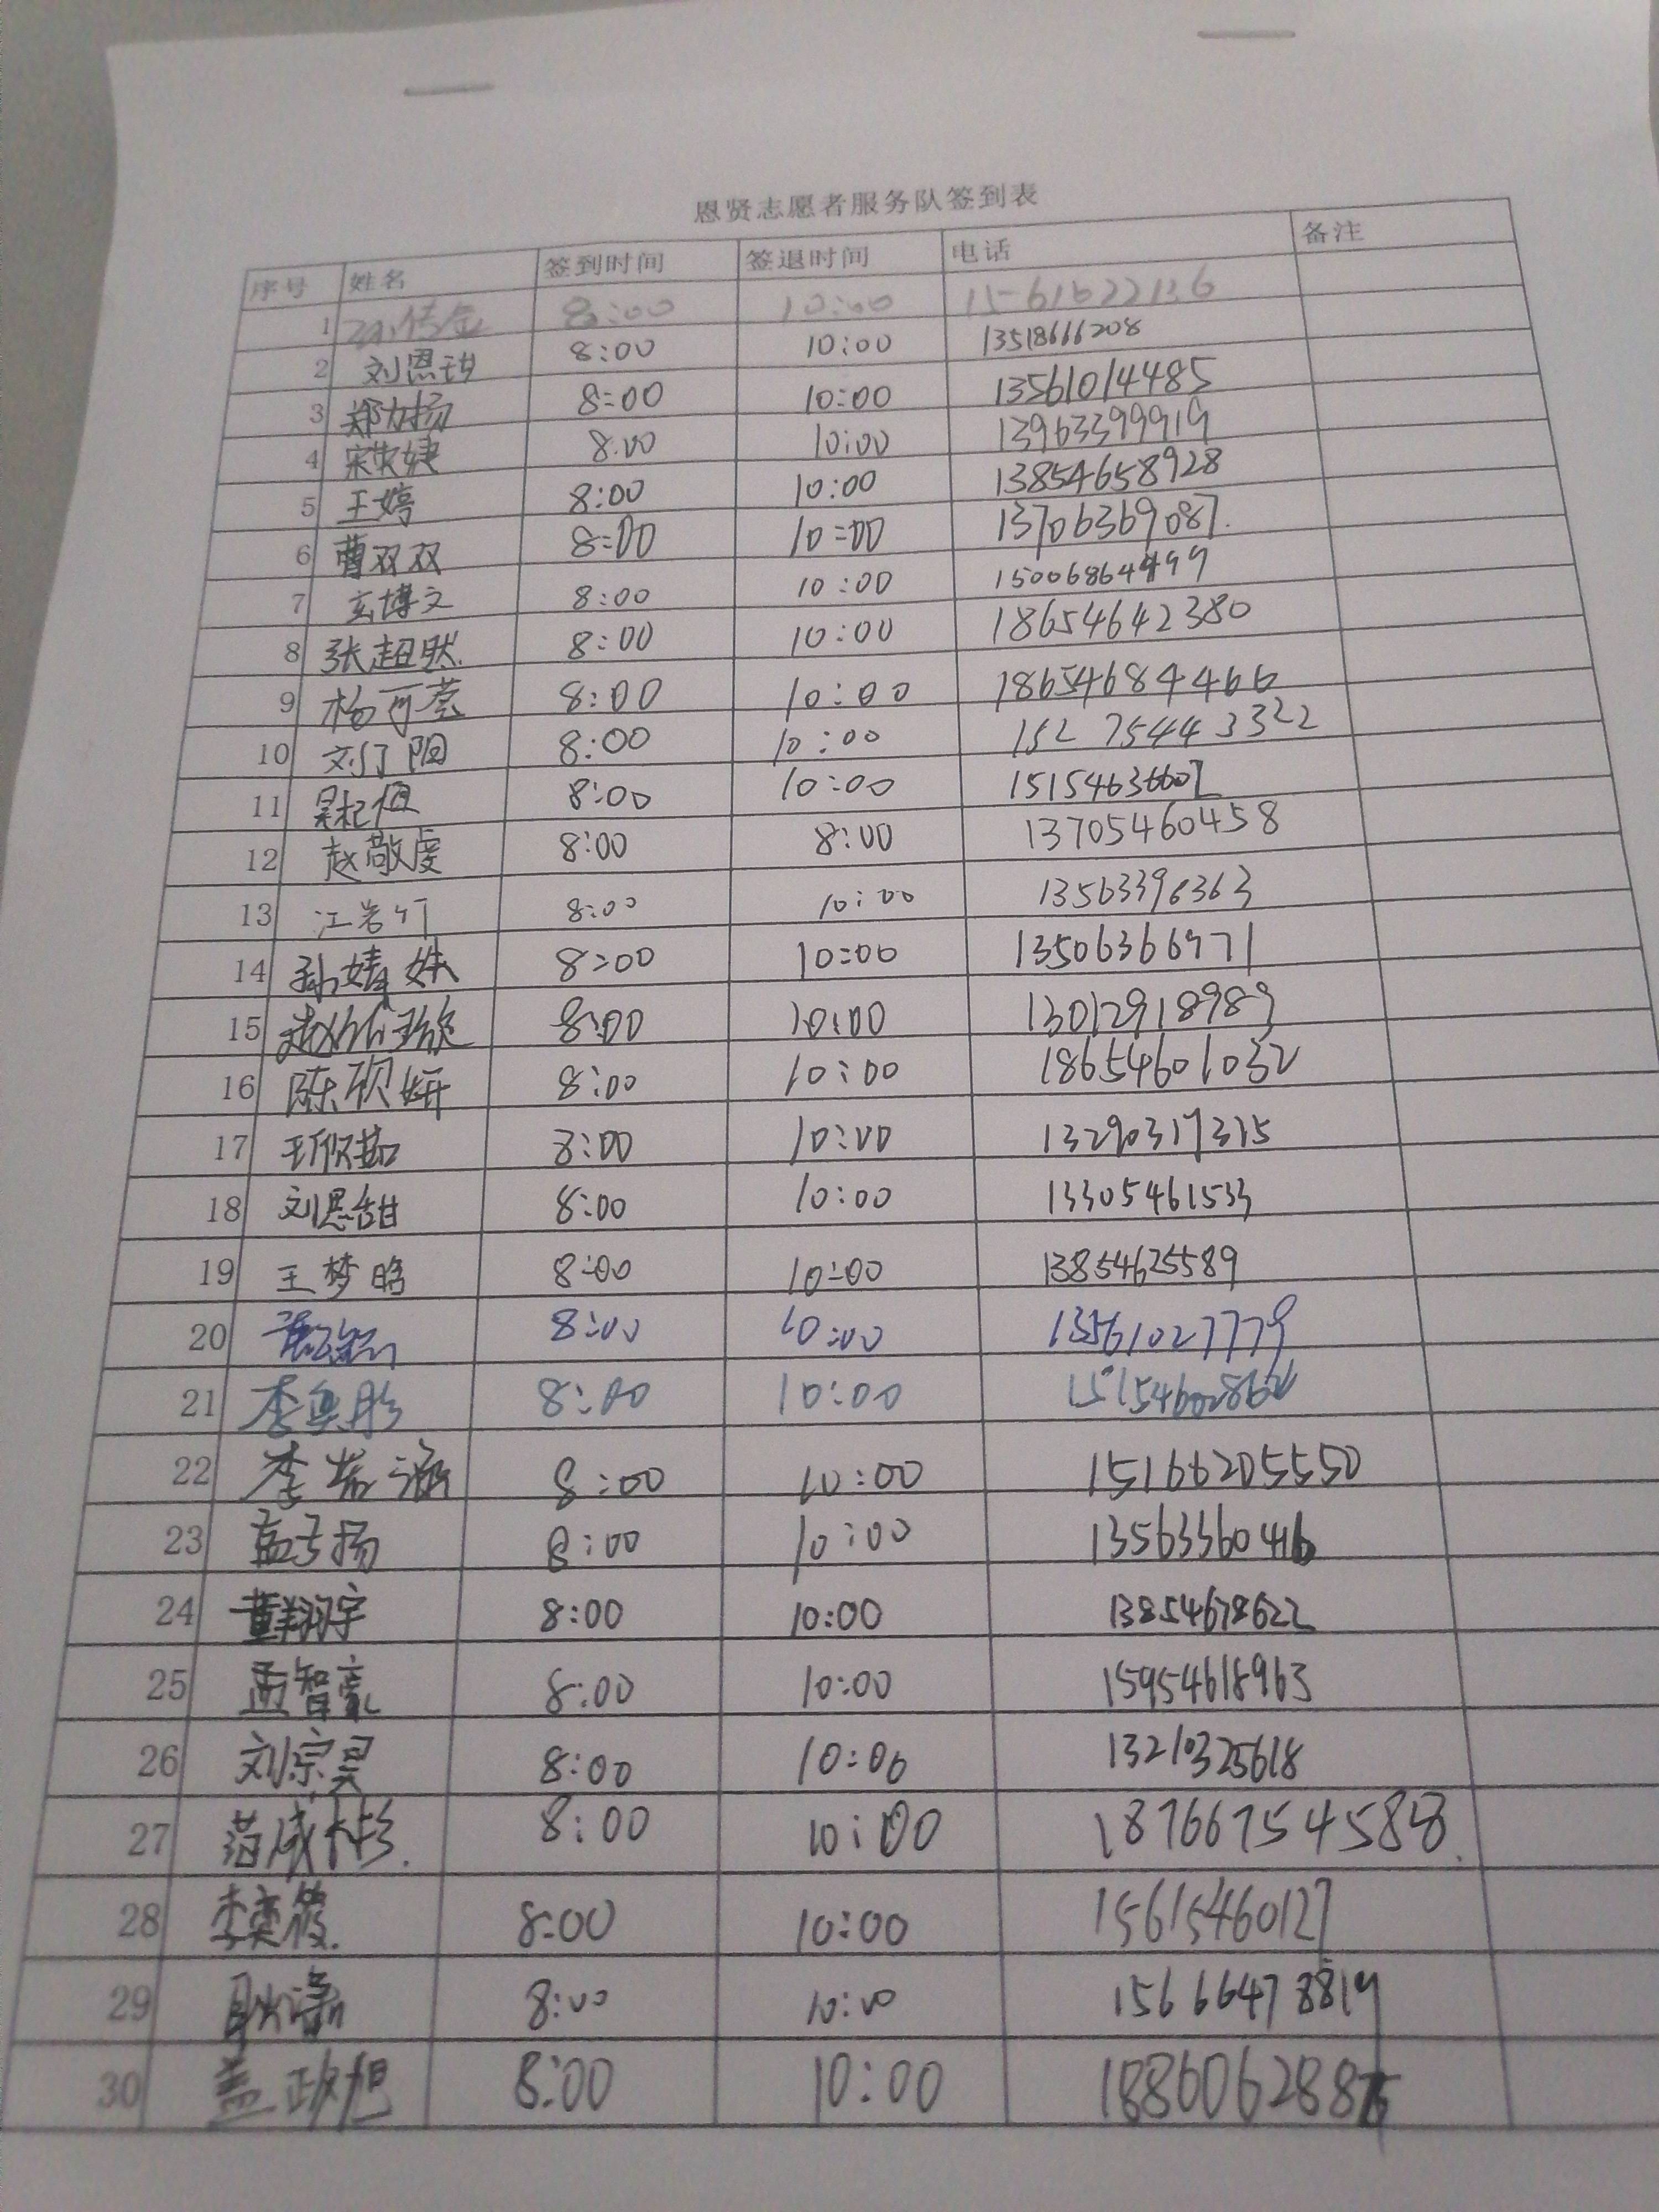 恩贤志愿者服务队签到表
序号 姓名 签到时间 签退时间 电话 备注
1 8:00 10:00
2 刘恩甜 8:00 10:00 13518666208
3 郑力扬 8:00 10:00 13561014485
4 8:00 10:00 13963399919
5 王婷 8:00 10:00 13854658928
6 曹双双 8:00 10:00 13706369087.
7 玄博文 8:00 10:00
8 张超然. 8:00 10:00 18654642380
9 杨可莹 8:00 10:00 18654684466
10 8:00 10:00 152 7544 3322
11 8:00 10:00
12 赵敬虔 8:00 8:00 13705460458
13 江岩竹 8:00 10:00 13563396363
14 孙婧姝 8:00 10:00 13506366971
15 8:00 10:00 13012918989
16 陈砚妍 8:00 10:00 18654601032
17 王欣茹 8:00 10:00 13290317315
18 刘恩甜 8:00 10:00 13305461533
19 王梦晗 8:00 10:00 13854625589
20 8:00 10:00 13561027779
21 8:00 10:00
22 8:00 10:00 15166205550
23 孟子扬 8:00 10:00 13563360416
24 董翔宇 8:00 10:00 13854678622
25 孟智豪 8:00 10:00 15954618963
26 刘宗昊 8:00 10:00 13210325618
27 范成彬. 8:00 10:00
28 李奕筱. 8:00 10:00 15615460127
29 8:00 10:00 15666478819
30 盖政旭 8:00 10:00